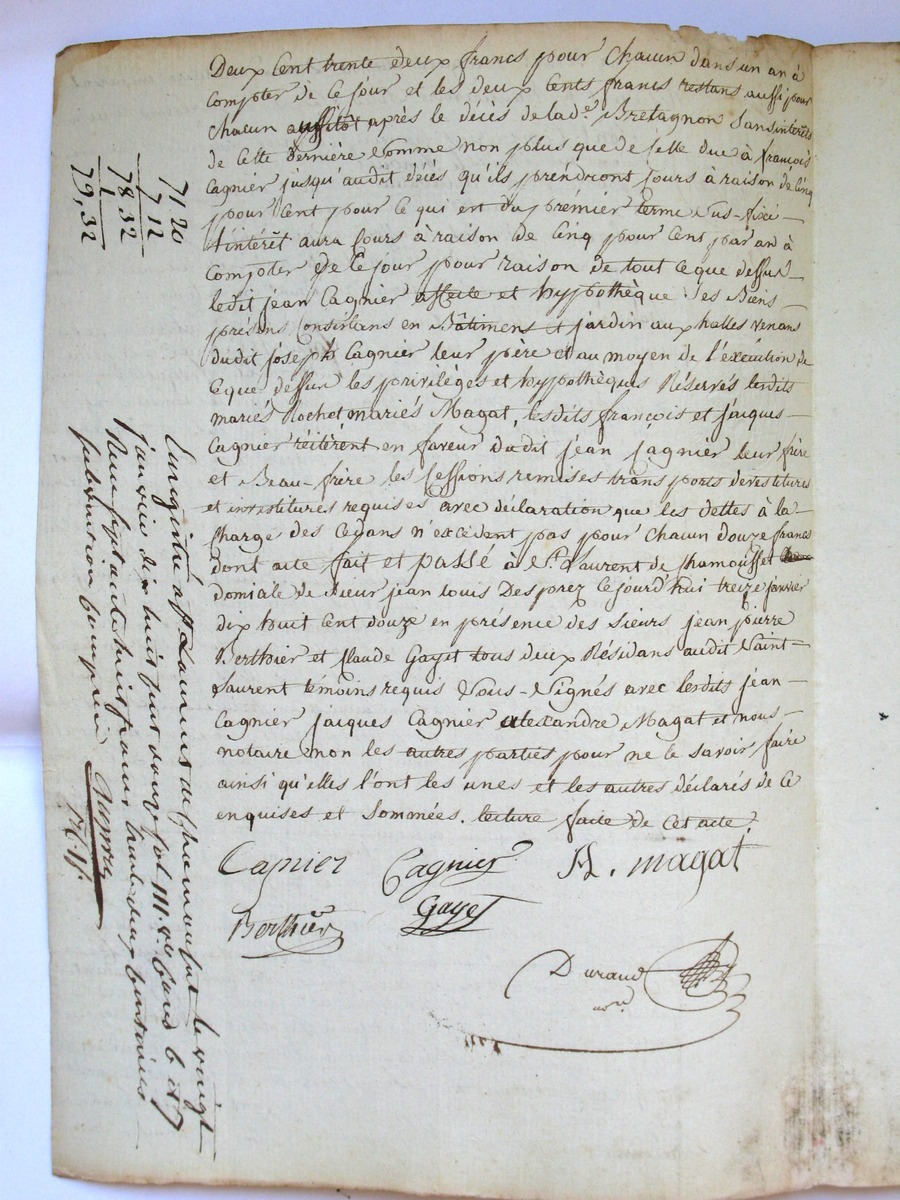 Deux Cent trente deux francs pour Chacun dans un an à
Compter de Ce jour et les deux Cents francs restans aussi pour
Chacun aussitôt après le décès de lade. Bretagnon Sans intérêts
de Cette dernière Comme non plus que de Celle due à françois
Cagnier jusqu'audit décès qu'ils prendront Cours à raison de Cinq
pour Cent pour ce qui est du prémier terme Sus-fixé
L'intérêt aura Cours à raison de Cinq pour Cent par an à
Compter de Ce jour pour raison de tout Ce que dessus
ledit jean Cagnier affecte et hypothèque Ses Biens
présens Consistans en Bâtimens et jardin aux halles venans
dudit joseph Cagnier leur père et au moyen de l'exécution de
Ce que dessus les privilèges et hypothèques Réservés lesdits
mariés Rochet mariés Magat, lesdits françois et jacques
Cagnier réitèrent en faveur dudit jean Cagnier leur frère
et Beau-frère les Cessions remises transports devestitures
et investitures requises avec déclaration que les dettes à la
Charge des Cédans n'excèdent pas pour Chacun douze francs
dont acte fait et passé à St. Laurent de Chamousset
domicile de Sieur jean louis Desprez Cejourd'hui treize janvier
dix huit Cent douze en présence des Sieurs jean pierre
Berthier et Claude Gayet tous deux Résidans audit Saint-
Laurent témoins requis Sous-Signés avec lesdits jean
Cagnier jacques Cagnier alexandre Magat et nous
notaire non les autres parties pour ne le Savoir faire
ainsi qu'elles l'ont les unes et les autres déclarés de Ce
enquises et Sommées. lecture faite de Cet acte.
Cagnier Cagnier A. magat
Berthier Gayet
Durand
nore
71 20
7 12
78 32
1
79,32
Enregistré à St Laurent de Chamousset le vingt
janvier dix huit Cent douze fol 111. Ro Cases 6 et 7
Reçu Soixante dix huit francs trente deux Centimes
Subvention Comprise